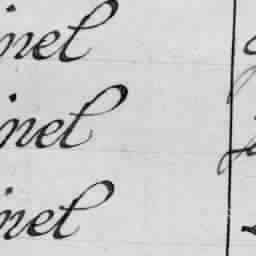 inel
inel
inel